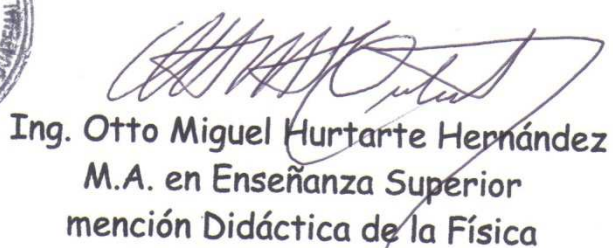 Ing. Otto Miguel Hurtarte Hernández
M.A. en Enseñanza Superior
mención Didáctica de la Física